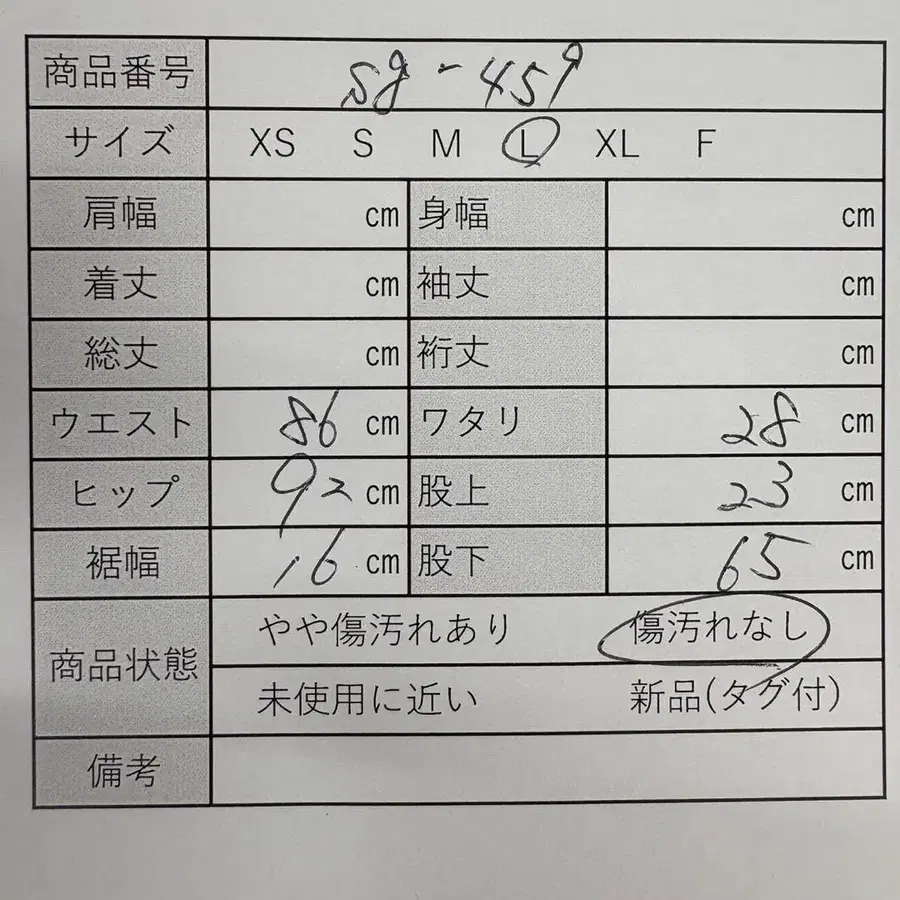 商品番号 sg-459
サイズ XS S M L XL F
肩幅 cm 身幅 cm
着丈 cm 袖丈 cm
総丈 cm 裄丈 cm
ウエスト 86 cm ワタリ 28 cm
ヒップ 92 cm 股上 23 cm
裾幅 16 cm 股下 65 cm
商品状態
やや傷汚れあり 傷汚れなし
未使用に近い 新品(タグ付)
備考